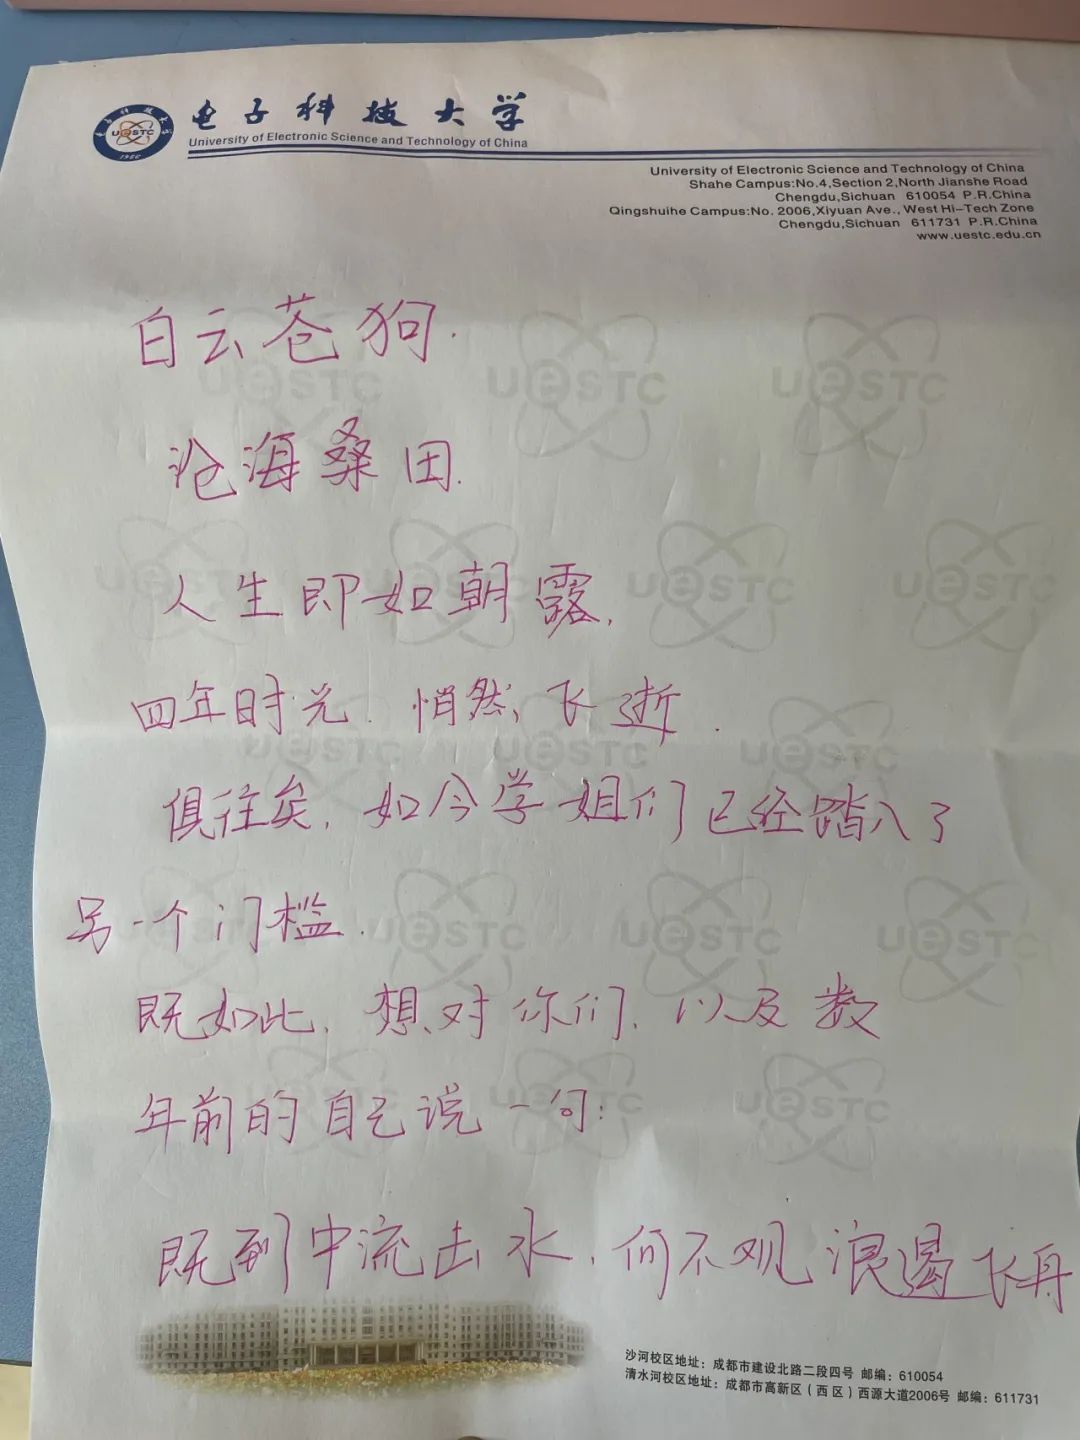 电子科技大学
University of Electronic Science and Technology of China
University of Electronic Science and Technology of China
Shahe Campus:No.4,Section 2,North Jianshe Road
Chengdu,Sichuan 610054 P.R.China
Qingshuihe Campus:No. 2006,Xiyuan Ave., West Hi-Tech Zone
Chengdu,Sichuan 611731 P.R.China
www.uestc.edu.cn
白云苍狗.
沧海桑田.
人生即如朝露,
四年时光.悄然飞逝.
俱往矣,如今学姐们已经踏入了
另一个门槛.
既如此,想对你们,以及数
年前的自己说一句:
既到中流击水,何不观浪遏飞舟
沙河校区地址：成都市建设北路二段四号 邮编：610054
清水河校区地址：成都市高新区（西区）西源大道2006号 邮编：611731